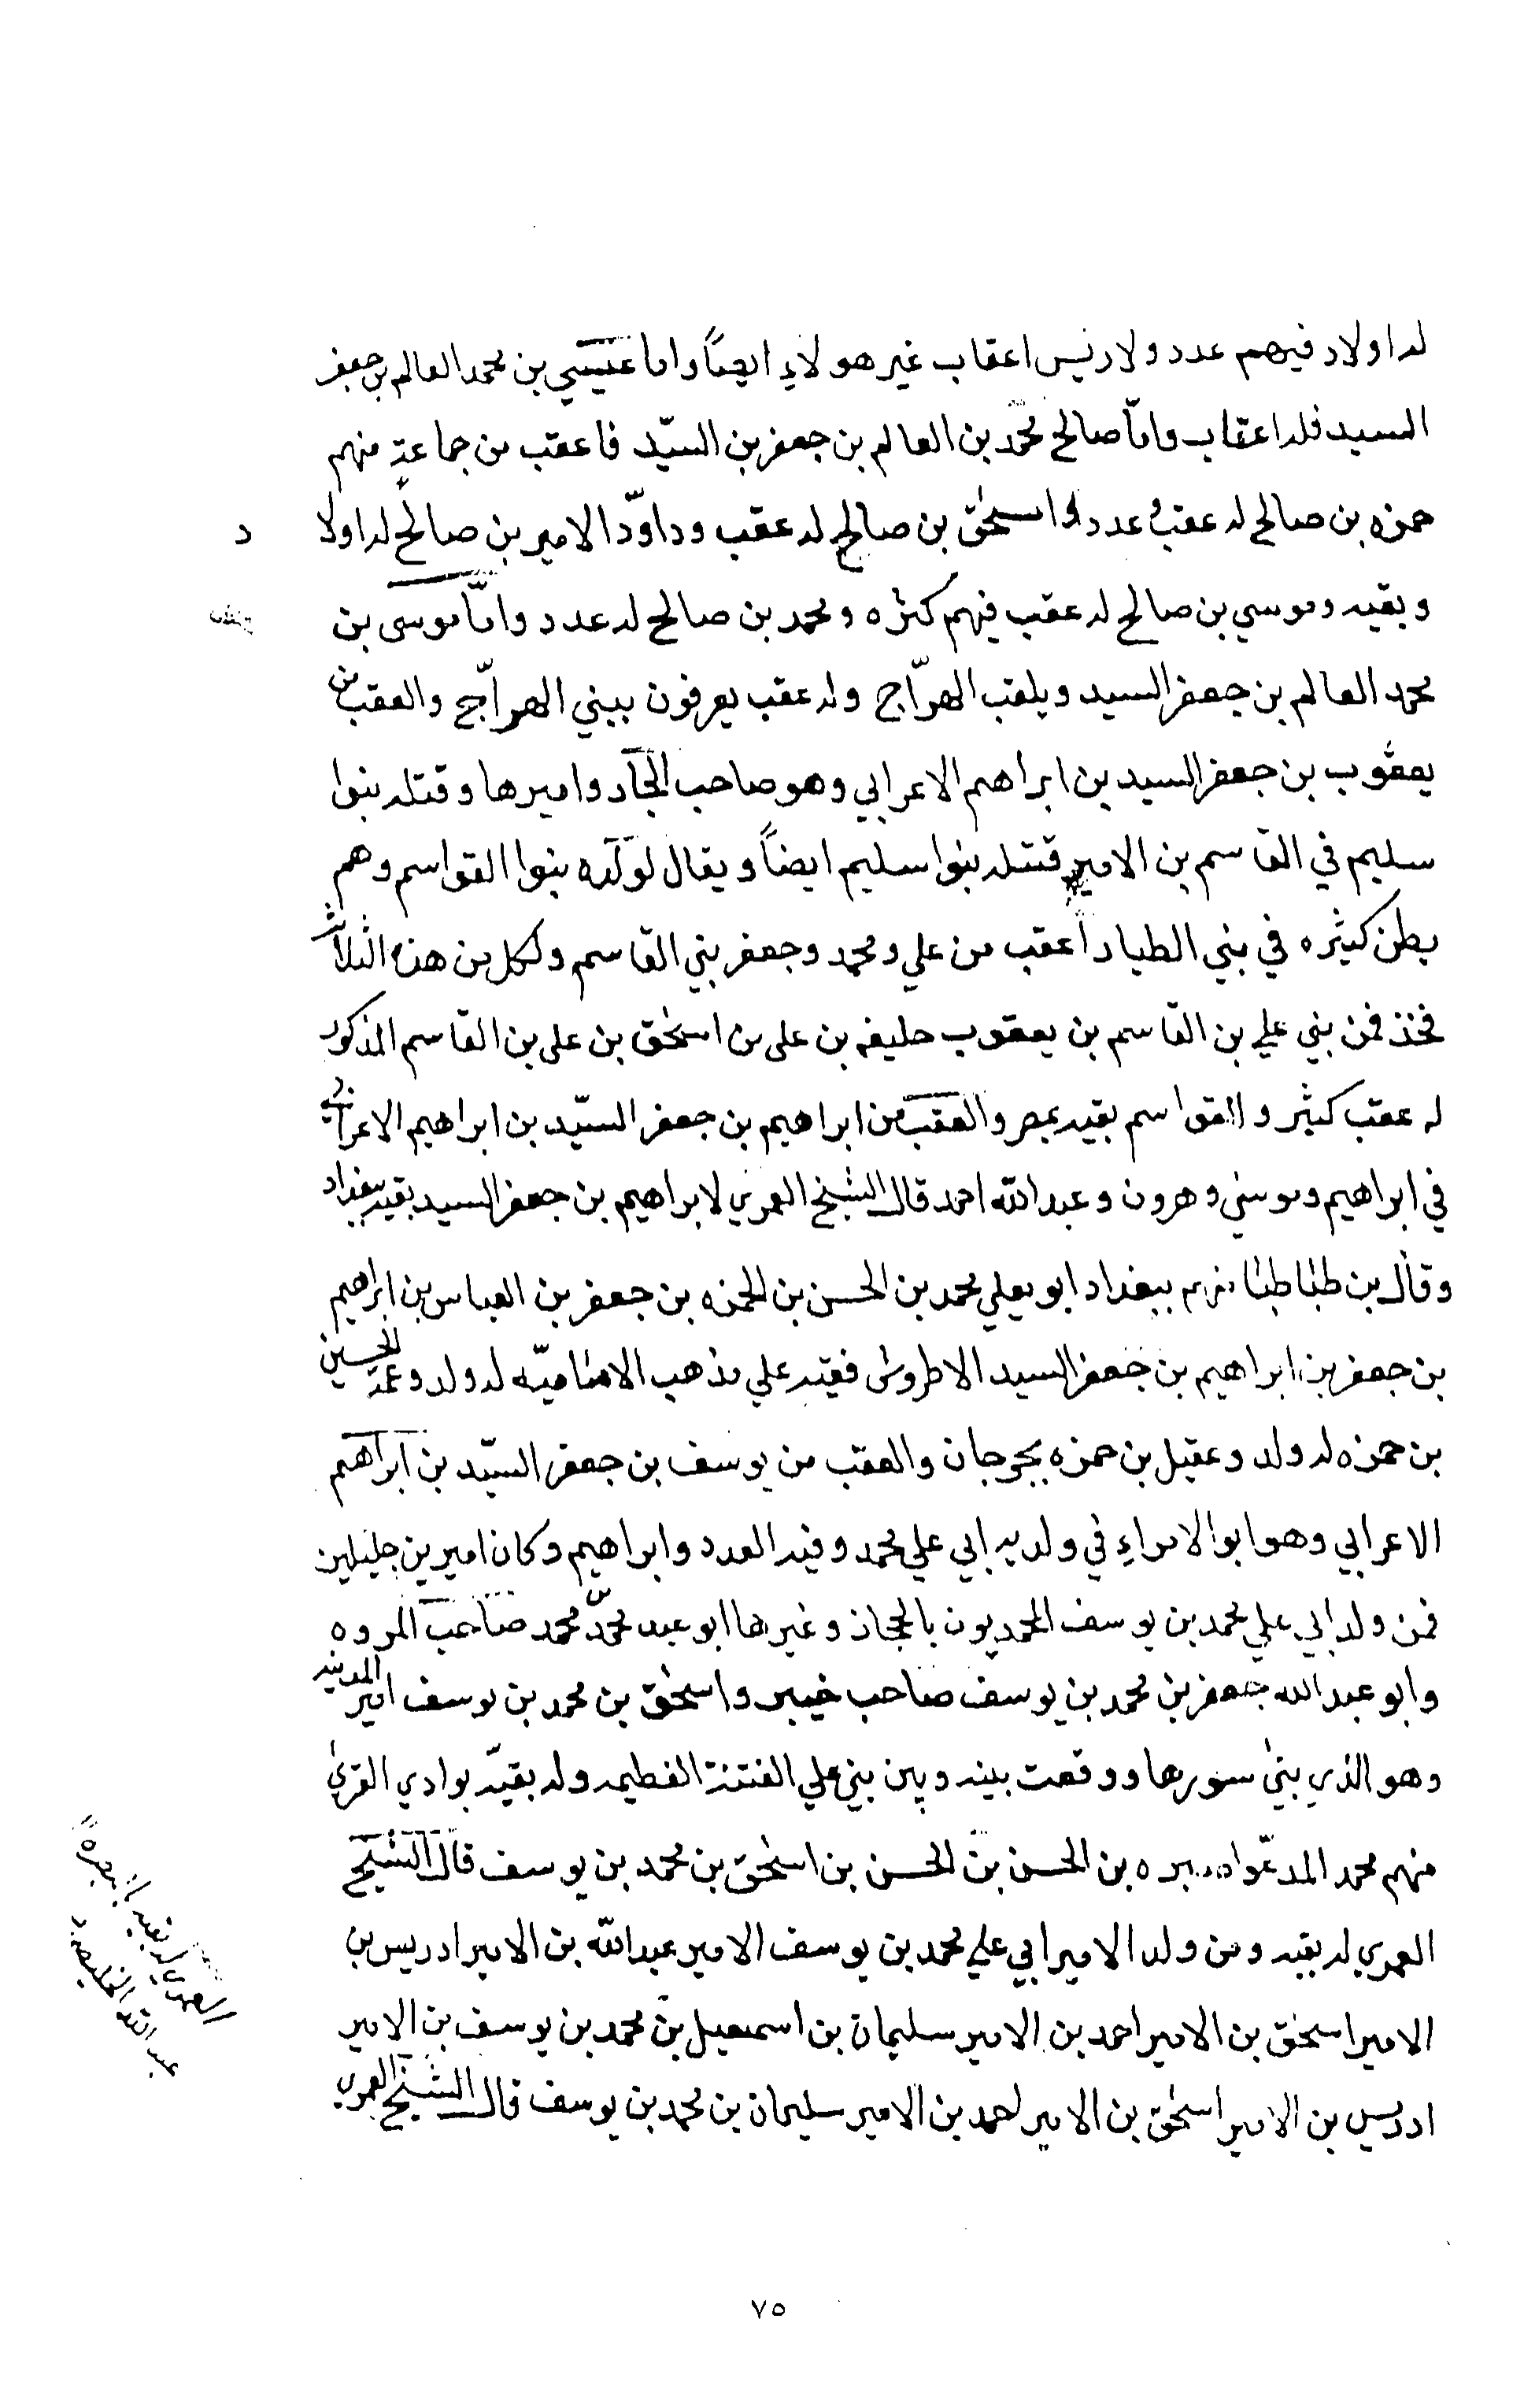 له اولاد فيهم عدد ولادريس اعقاب غير هولاءِ ايضاً واما عيسي بن محمد العالم بن جعفر
السيد فله اعقاب وامّا صالح محمّد بن العالم بن جعفر بن السيّد فاعقب من جماعةٍ منهم
حمزه بن صالح له عقب وعدد واسحٰق بن صالح له عقب وداوّد الامير بن صالح له اولا د
وبقيه وموسي بن صالح له عقب فيهم كثره ومحمد بن صالح له عدد وامّا موسى بن
محمد العالم بن جعفر السيد ويلقب الهرّاج وله عقب يعرفون ببني الهرّاج والعقب من
يعقوب بن جعفر السيد بن ابراهم الاعرابي وهو صاحب الجار واميرها وقتله بنوا
سليم في القاسم بن الامير قتله بنوا سليم ايضاً ويقال لولده بنوا القواسم وهم
بطن كثيره في بني الطيار اعقب من علي ومحمد وجعفر بني القاسم ولكل من هذه الثلاث
فخذ فمن بني علي بن القاسم بن يعقوب خليفه بن على بن اسحٰق بن على بن القاسم المذكور
له عقب كثير والقواسم بقيه بمصر والعقب من ابراهيم بن جعفر السيّد بن ابراهيم الاعرابي
في ابراهيم وموسي وهرون وعبدالله احمد قال الشيخ العمري لابراهيم بن جعفر السيد بقيه ببغداد
وقال بن طباطبا منهم ببغداد ابو يعلي محمد بن الحسن بن الحمزه بن جعفر بن العباس بن ابراهيم
بن جعفر بن ابراهيم بن جعفر السيد الاطروش فقيه علي مذهب الاماميّه له ولد وعمّه الحسين
بن حمزه له ولد وعقيل بن حمزه بجرجان والعقب من يوسف بن جعفر السيّد بن ابراهم
الاعرابي وهو ابو الامراءِ في ولديه ابي علي محمد وفيه العدد وابراهيم وكان اميرين جليلين
فمن ولد ابي علي محمد بن يوسف المحمديون بالحجاز وغيرها ابو عبد محمّد محمد صاحب المروه
وابو عبدالله جعفر بن محمد بن يوسف صاحب خيبر واسحٰق بن محمد بن يوسف امير المدينه
وهو الذي بنىٰ سورها ووقعت بينه وبين بني علي الفتنة العظيمه وله بقيّه بوادي القرىٰ
منهم محمد المدعّو بن الحسن بن الحسن بن اسحٰق بن محمد بن يوسف قال الشيخ
العمري له بقيه ومن ولد الامير ابي علي محمد بن يوسف الامير عبدالله بن الامير ادريس بن
الامير اسحٰق بن الامير احمد بن الامير سليمان بن اسمعيل بن محمد بن يوسف بن الامير
ادريس بن الامير اسحٰق بن الامير احمد بن الامير سليمان بن محمد بن يوسف قال الشيخ العمري
٧٥